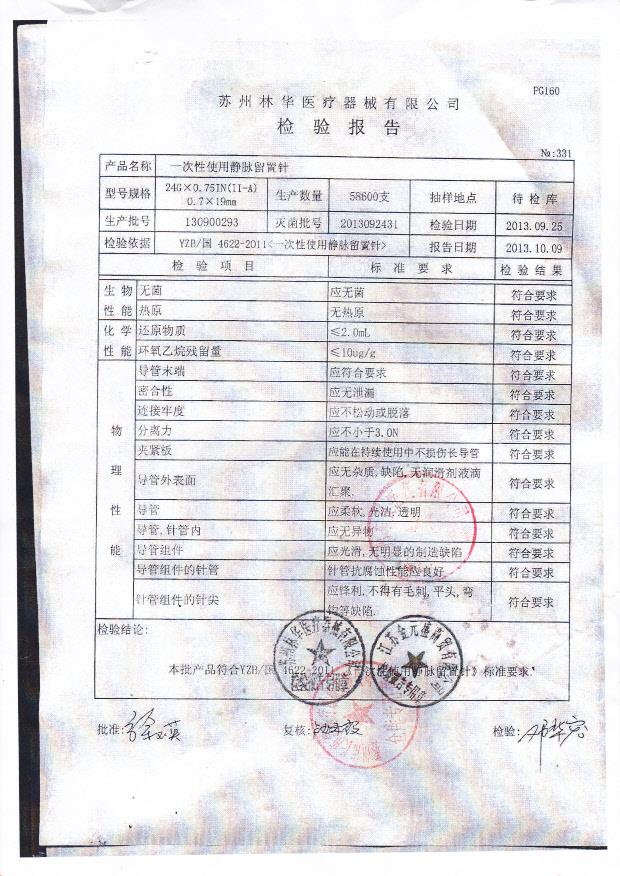 PG160
苏州林华医疗器械有限公司
检验报告
№:331
产品名称 一次性使用静脉留置针
型号规格 24G×0.75IN(II-A) 0.7×19mm 生产数量 58600支 抽样地点 待检库
生产批号 130900293 灭菌批号 2013092431 检验日期 2013.09.25
检验依据 YZB/国 4622-2011<一次性使用静脉留置针> 报告日期 2013.10.09
检验项目 标准要求 检验结果
生物性能 无菌 应无菌 符合要求
热原 无热原 符合要求
化学性能 还原物质 ≤2.0mL 符合要求
环氧乙烷残留量 ≤10ug/g 符合要求
物理性能 导管末端 应符合要求 符合要求
密合性 应无泄漏 符合要求
连接牢度 应不松动或脱落 符合要求
分离力 应不小于3.0N 符合要求
夹紧板 应能在持续使用中不损伤长导管 符合要求
导管外表面 应无杂质,缺陷,无润滑剂液滴汇聚. 符合要求
导管 应柔软,光洁,透明 符合要求
导管,针管内 应无异物 符合要求
导管组件 应光滑,无明显的制造缺陷 符合要求
导管组件的针管 针管抗腐蚀性能应良好 符合要求
针管组件的针尖 应锋利,不得有毛刺,平头,弯钩等缺陷. 符合要求
检验结论:
本批产品符合YZB/国 4622-2011 《一次性使用静脉留置针》标准要求.
苏州林华医疗器械有限公司
江苏金元盛商贸有限公司
批准: 复核: 检验: